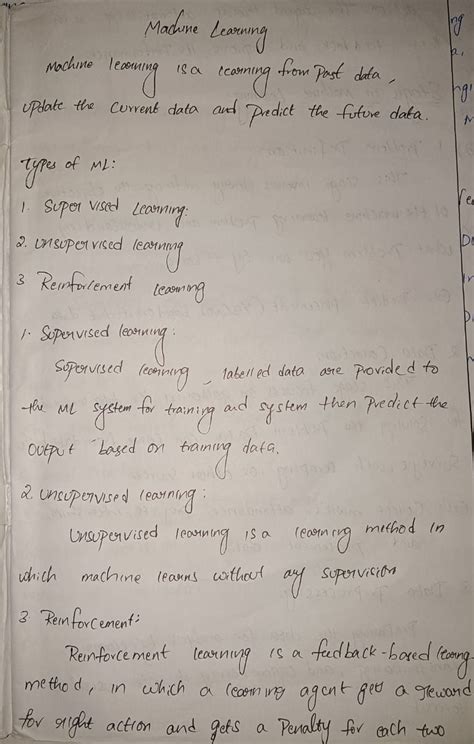 Machine Learning
Machine learning is a learning from Past data,
update the current data and Predict the future data.
Types of ML:
1. Supervised Learning:
2. unsupervised learning
3 Reinforcement learning
1. Supervised learning:
Supervised learning, labelled data are provided to
the ML system for training and system then Predict the
output based on training data.
2. unsupervised learning:
Unsupervised learning is a learning method in
which machine learns without any supervision
3 Reinforcement:
Reinforcement learning is a feedback-based learning
method, in which a learning agent gets a reward
for right action and gets a Penalty for each two